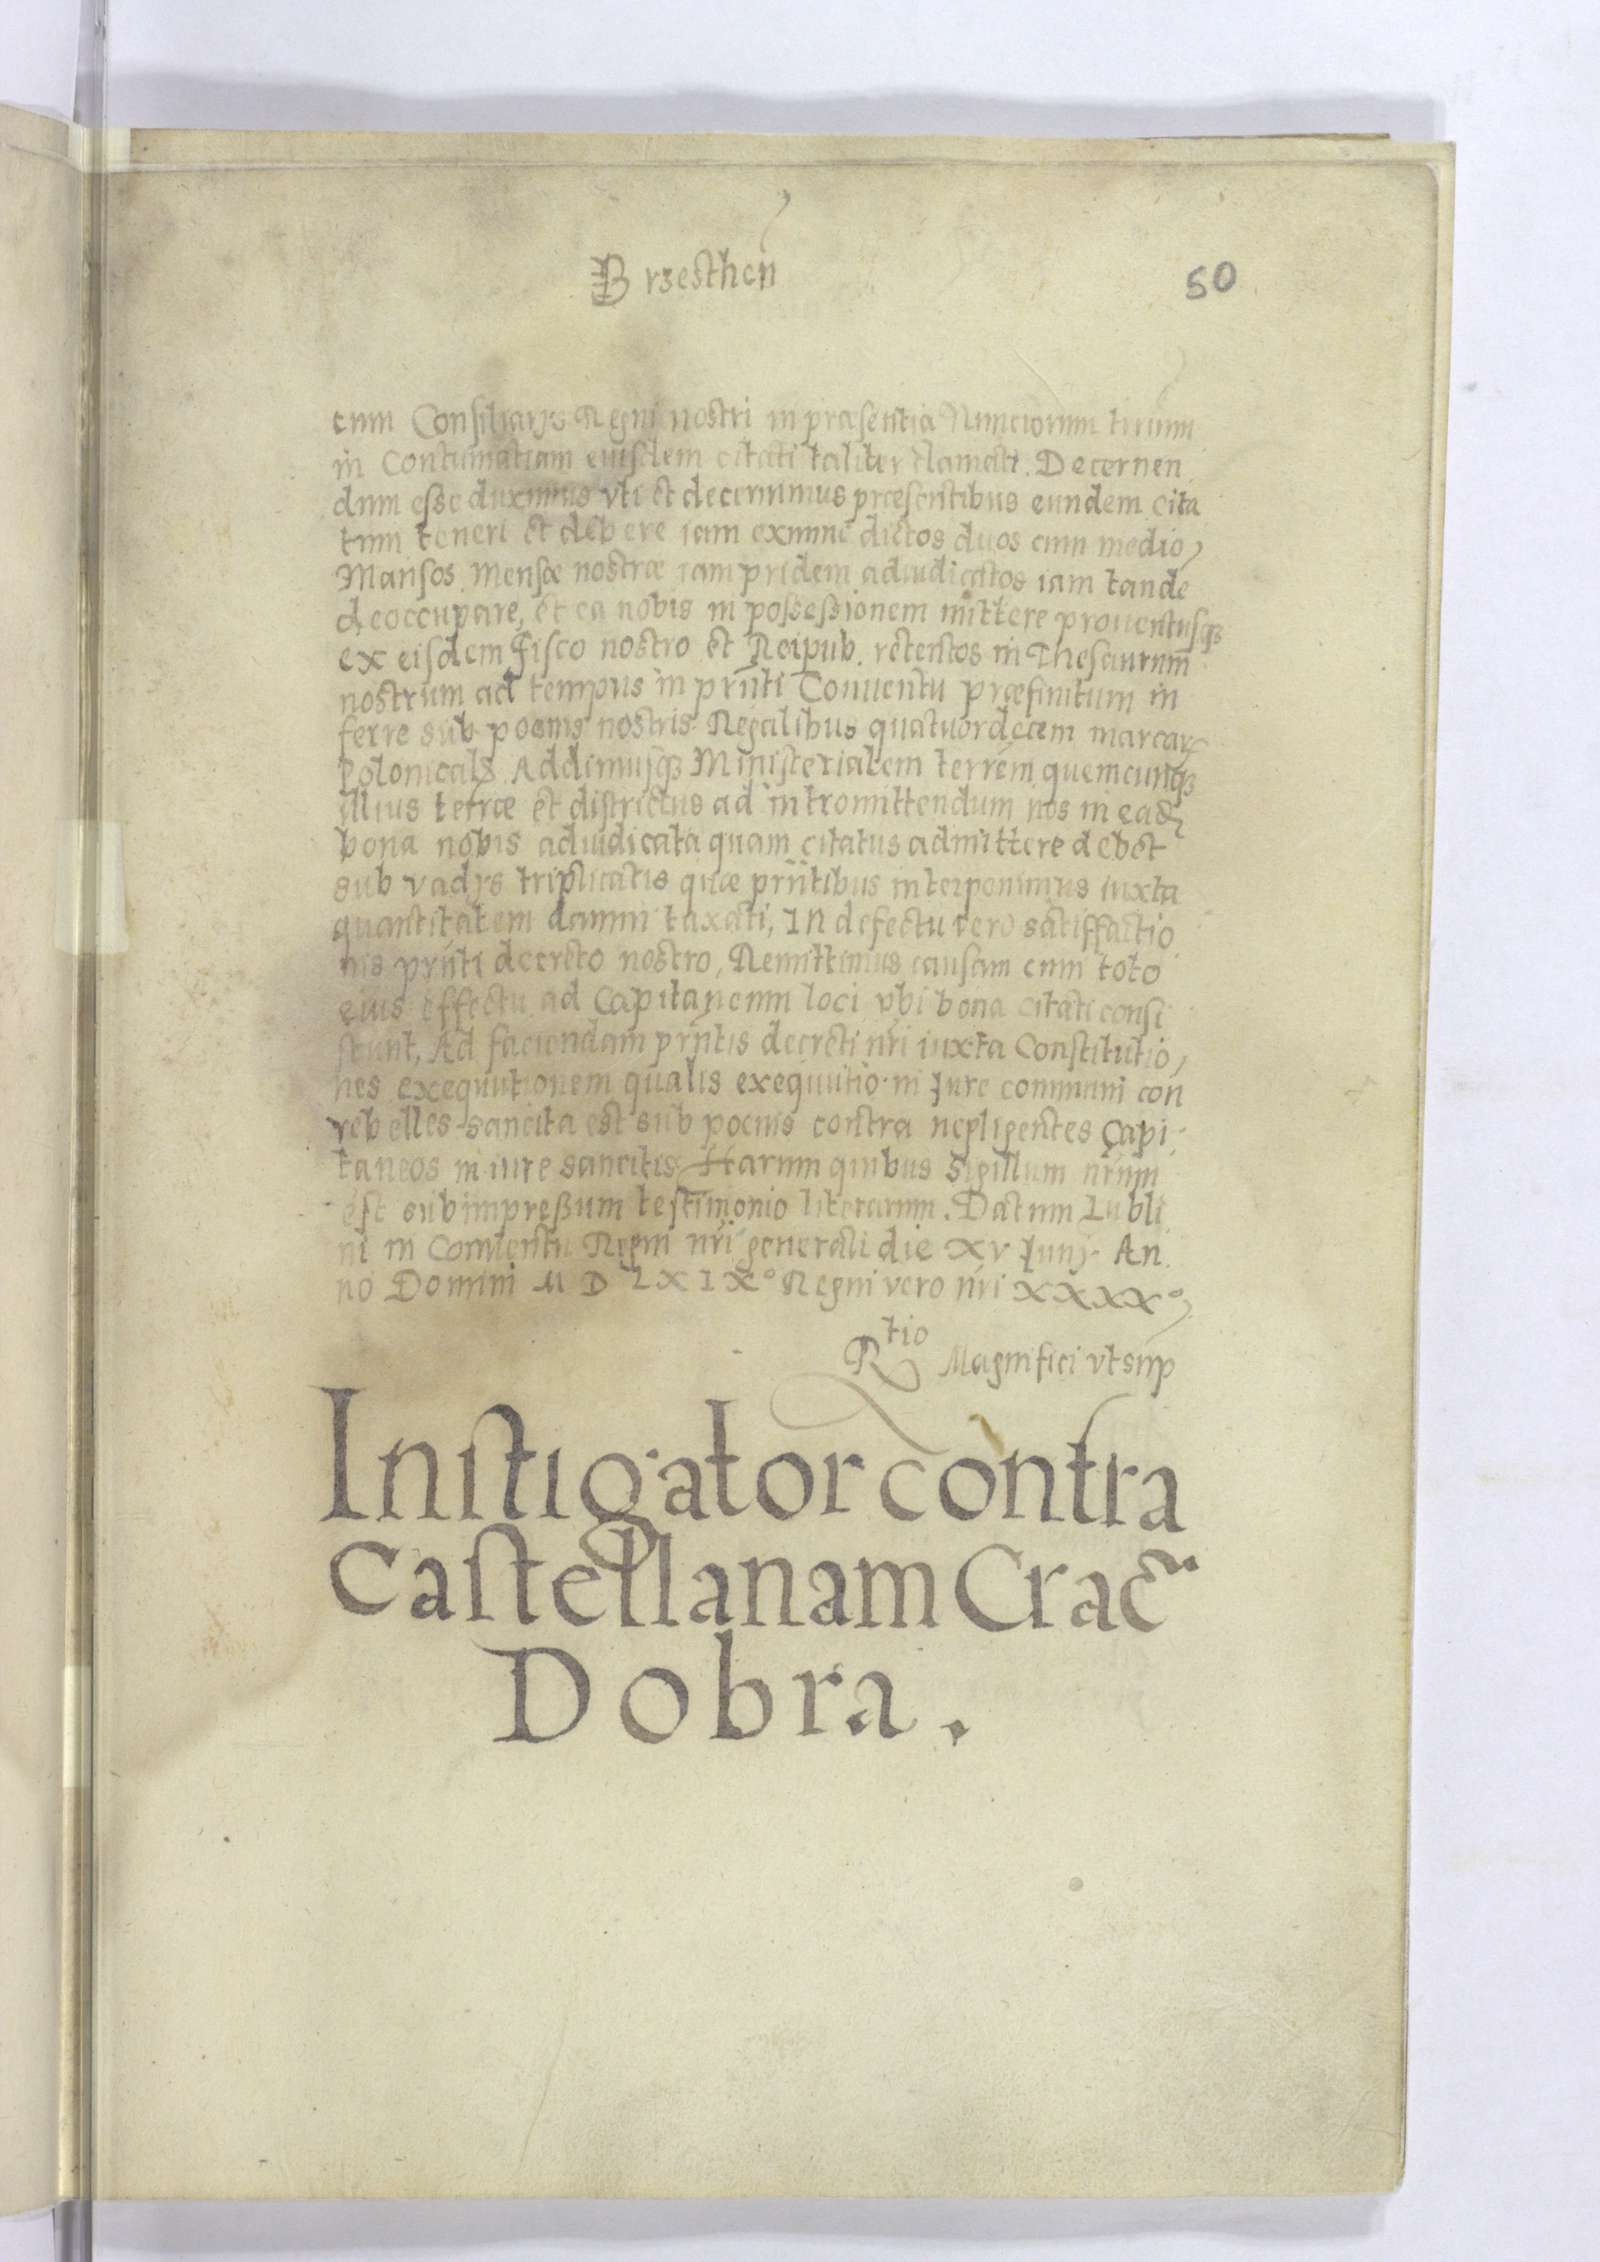 Brzesthen
50
cum Consiliarijs Regni nostri in præsentia Nunciorum trium
in Contumatiam eiusdem citati taliter clamati. Decernen
dum esse duximus vti et decernimus præsentibus eundem cita
tum teneri et debere iam exnunc dictos duos cum medio
Mansos Mensæ nostræ iampridem adiudicatos iam tande
deoccupare, et ea nobis in possessionem mittere prouentusq;
ex eisdem fisco nostro et Reipub. retentos in Thesaurum
nostrum ad tempus in prñti Conuentu præfinitum in
ferre sub poenis nostris Regalibus quatuordecem marcar
Polonicals Addimusq; Ministerialem terrém quemcunq;
illius terræ et districtus ad intromittendum nos in ead
bona nobis adiudicata quam citatus admittere debet
sub vadijs triplicatis quæ prñtibus interponimus iuxta
quantitatem damni taxati, In defectu vero satisffactio
nis prñti decreto nostro, Remittimus causam cum toto
eius effectu ad Capitaneum loci vbi bona citati consi
stunt, Ad faciendam prñtis decreti nri iuxta Constitutio
nes exequutionem qualis exequutio in Jure communi con
rebelles sancita est sub poenis contra negligentes Capi
taneos in iure sancitis Harum quibus sigillum nrum
est subimpressum testimonio literarum. Datum Lubli
ni in Conuentu Regni nri generali die XV Junij An
no Domini M D LXIX° Regni vero nri XXXX°
Rtio Magnifici vt sup
Instigator contra
Castellanam Crac
Dobra.